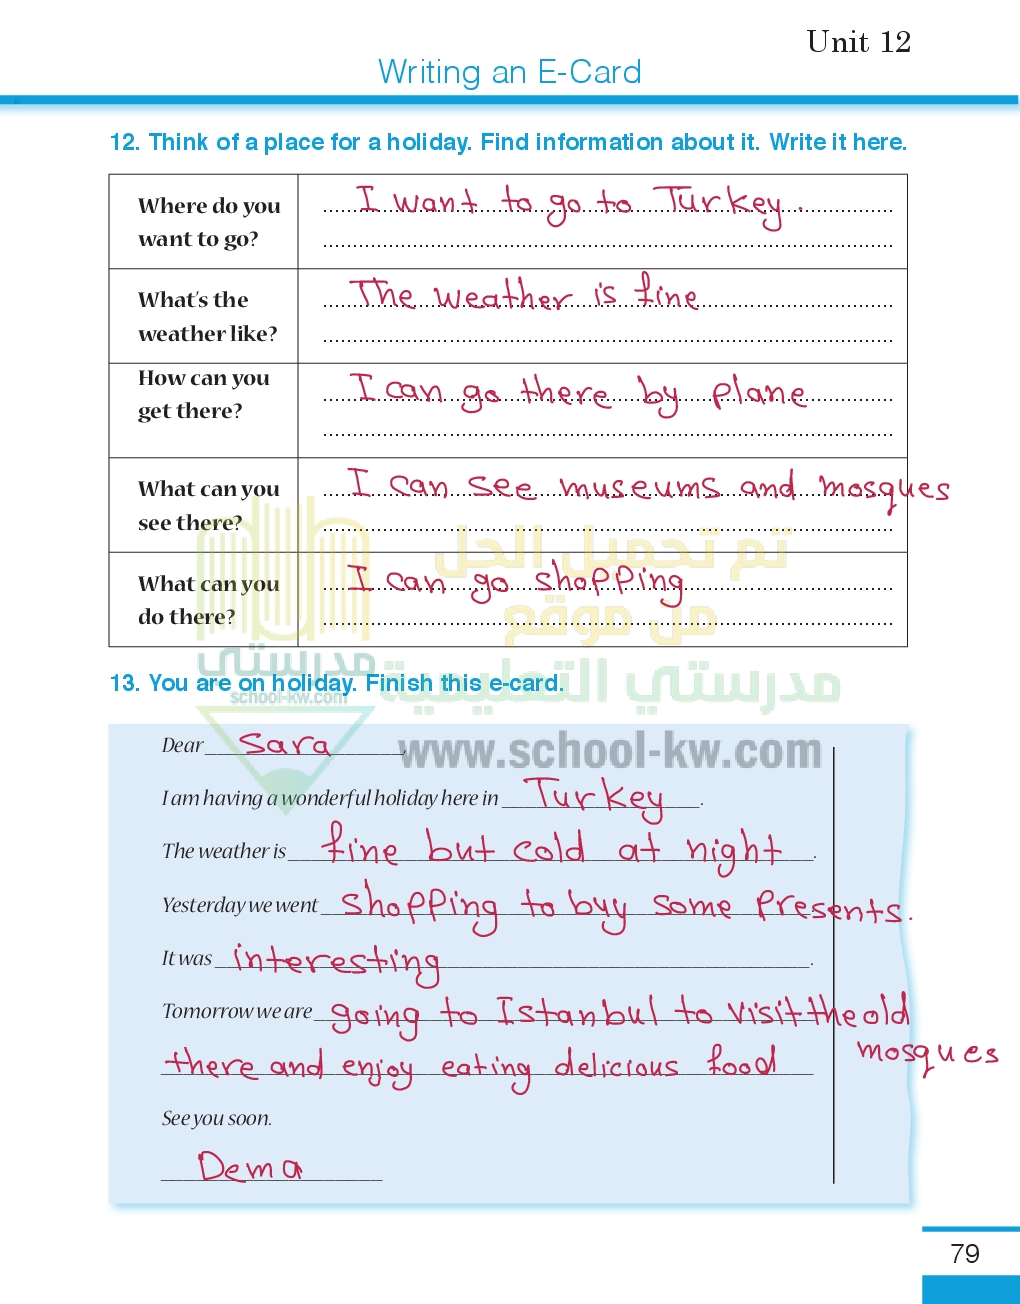 Unit 12
Writing an E-Card
12. Think of a place for a holiday. Find information about it. Write it here.
Where do you want to go?
I want to go to Turkey.
What's the weather like?
The weather is fine
How can you get there?
I can go there by plane
What can you see there?
I can see museums and mosques
What can you do there?
I can go shopping
تم تحميل الحل
من موقع
مدرستي التعليمية
مدرستي
school-kw.com
www.school-kw.com
13. You are on holiday. Finish this e-card.
Dear Sara,
I am having a wonderful holiday here in Turkey.
The weather is fine but cold at night.
Yesterday we went shopping to buy some presents.
It was interesting.
Tomorrow we are going to Istanbul to visit the old mosques
there and enjoy eating delicious food
See you soon.
Dema
79